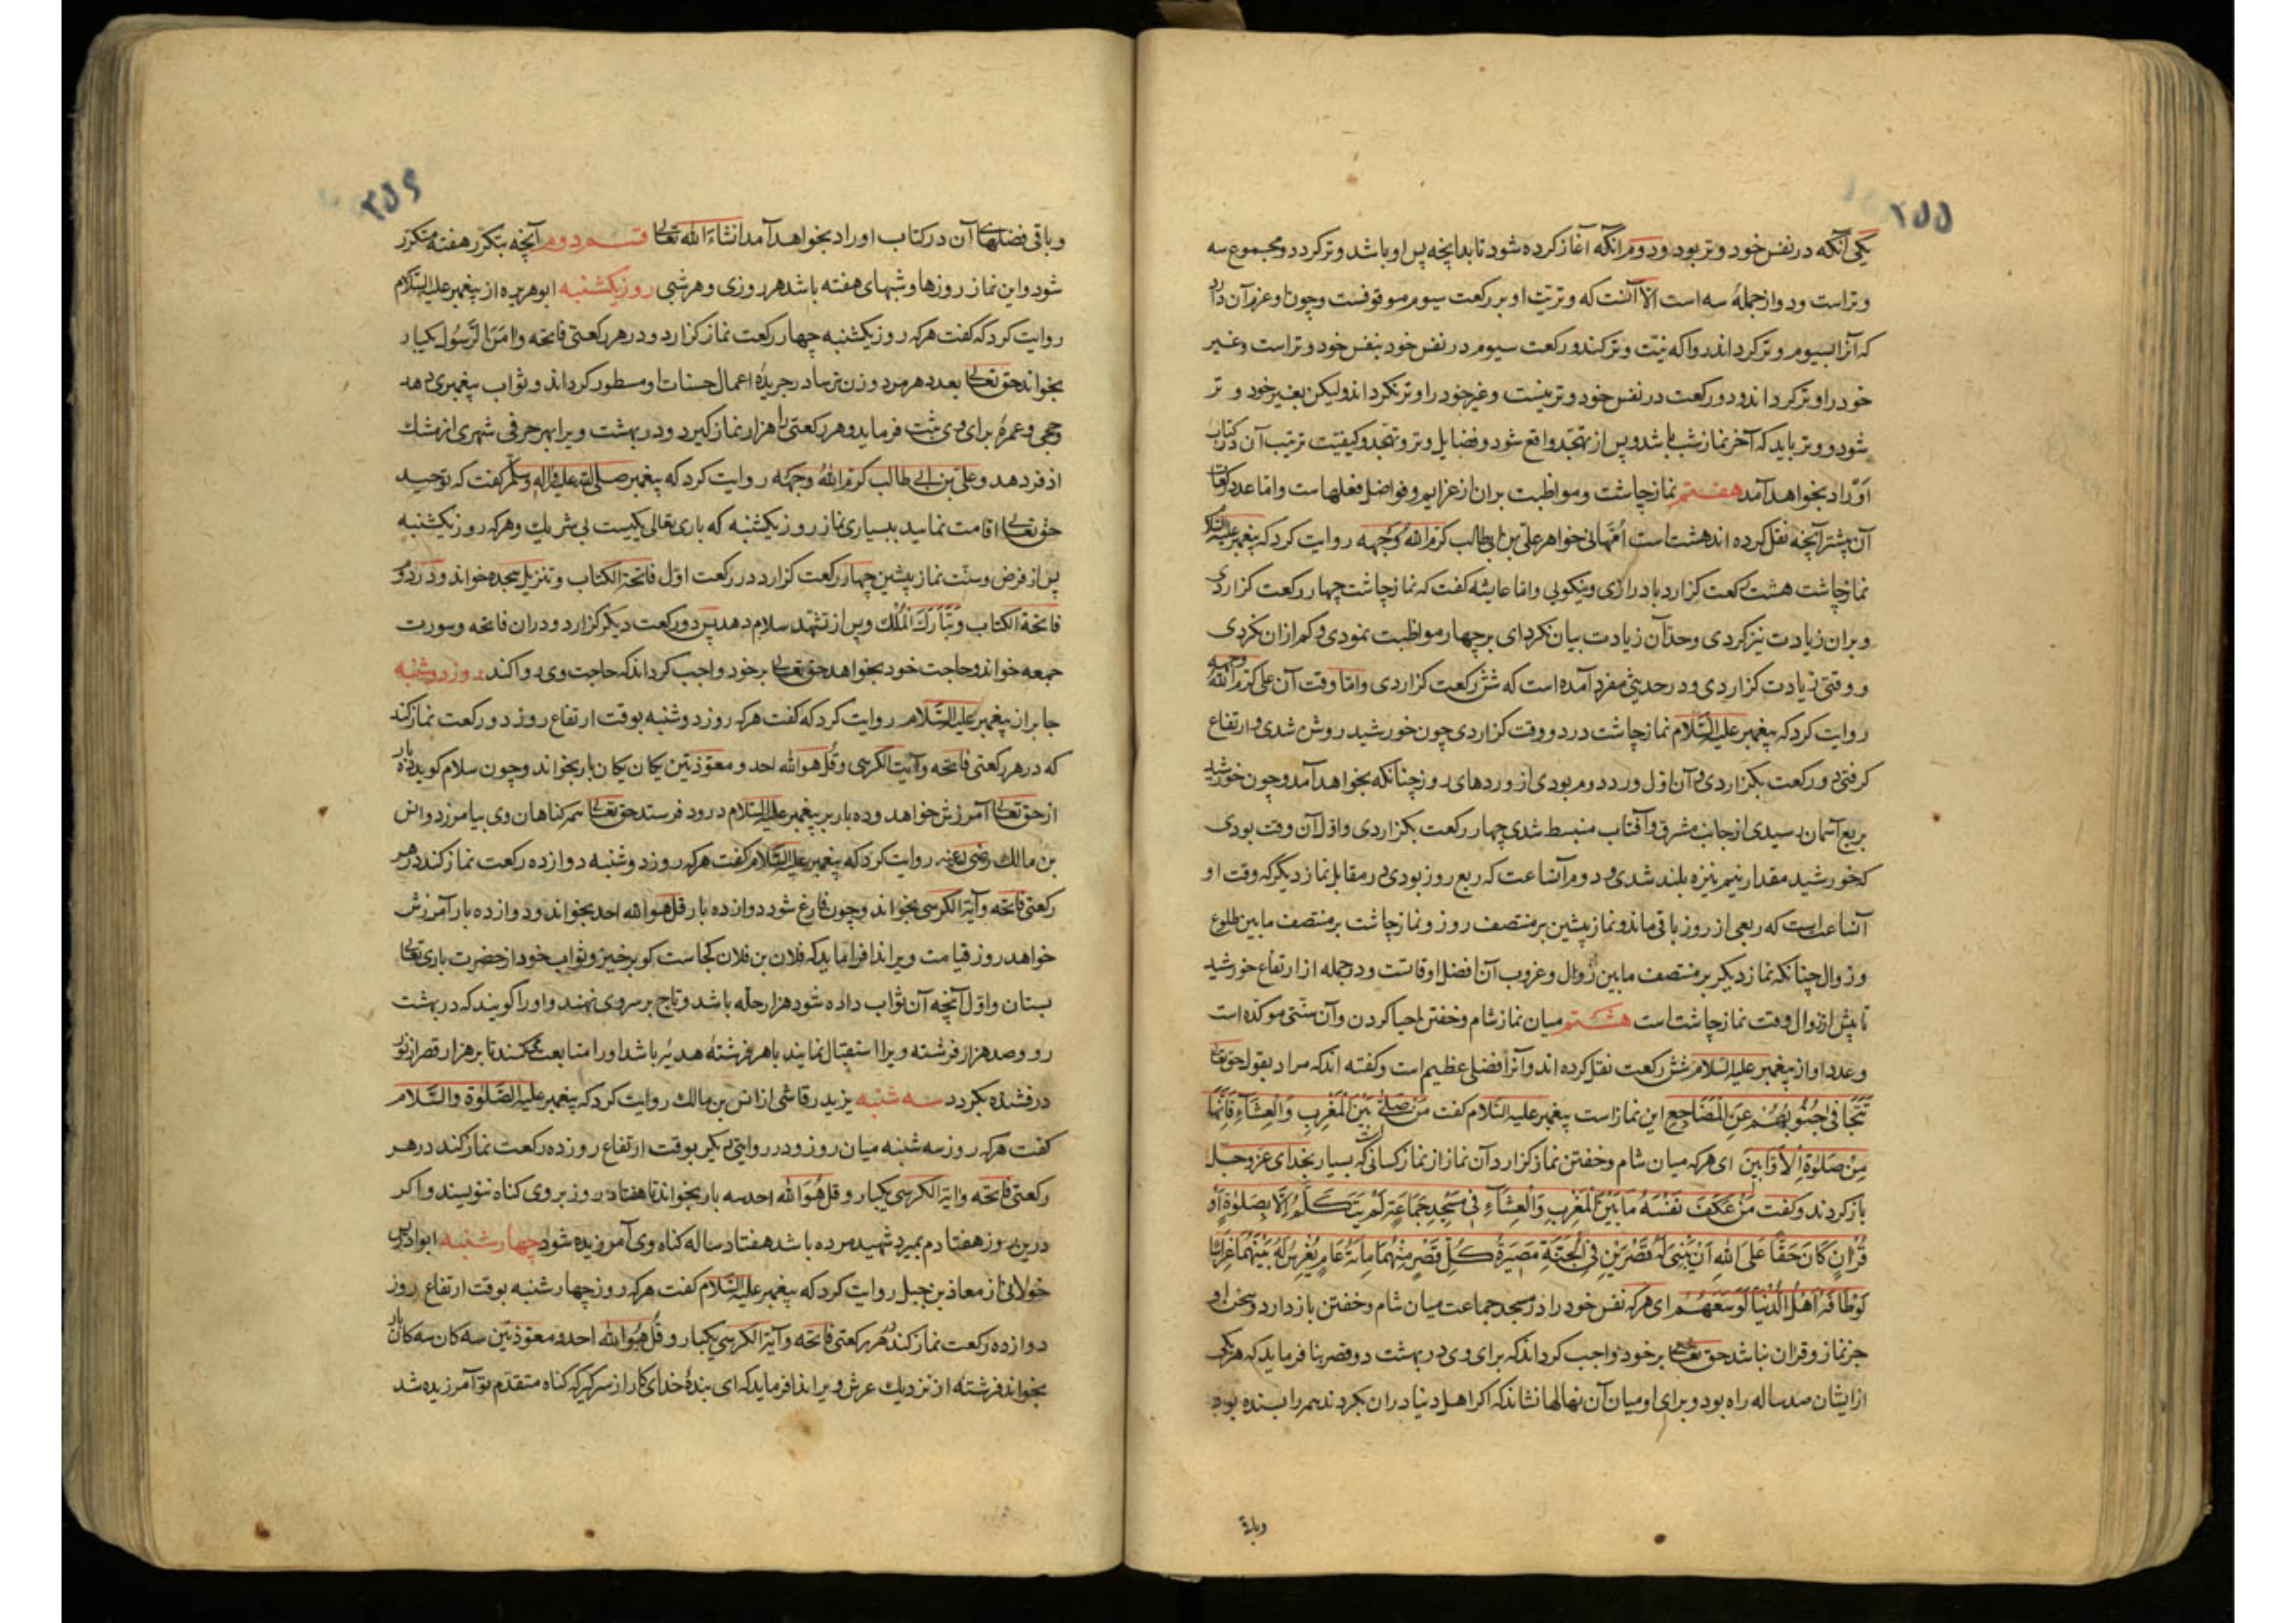 ۲۵۵
یکی آنکه در نفس خود وتر بود و دوم آنکه آغاز کرده شود تا بدانچه پس او باشد وتر کردد و مجموع سه
وتر است و دو از جملهٔ سه است الا آنست که وتریت او بر رکعت سیوم موقوفست و چون او عزم آن دارد
که آنرا بسیوم وتر کرداند روا که نیت وتر کند و رکعت سیوم در نفس خود بنفس خود وتر است و غیر
خود را وتر کرداند و دو رکعت در نفس خود وتر نیست و غیر خود را وتر نکرداند ولیکن بغیر خود وتر
شود و وتر باید که آخر نماز شب باشد و پس از تهجد واقع شود و فضایل وتر و تهجد و کیفیت ترتیب آن در کتاب
اوراد بخواهد آمد هفتم نماز چاشت و مواظبت بران از عزایم و فواضل فعلهاست و اما عدد رکعات
آن بیشتر آنچه نقل کرده اند هشت است ام هانی خواهر علی بن ابی طالب کرم الله وجهه روایت کرد که پیغمبر علیه السلام
نماز چاشت هشت رکعت کزارد با درازی و نیکویی و اما عایشه کفت که نماز چاشت چهار رکعت کزاردی
و بران زیادت نیز کردی و حد آن زیادت بیان نکرد ای بر چهار مواظبت نمودی و کم ازان نکردی
و وقتی زیادت کزاردی و در حدیثی مفرد آمده است که شش رکعت کزاردی و اما وقت آن علی کرم الله وجهه
روایت کرد که پیغمبر علیه السلام نماز چاشت در دو وقت کزاردی چون خورشید روشن شدی و ارتفاع
کرفتی دو رکعت بکزاردی و آن اول ورد دوم بودی از وردهای روز چنانکه بخواهد آمد و چون خورشید
بربع آسمان رسیدی از جانب مشرق و آفتاب منبسط شدی چهار رکعت بکزاردی و اول آن وقت بودی
که خورشید مقدار نیم نیزه بلند شدی و دوم آنساعت که ربع روز بودی در مقابل نماز دیگر که وقت او
آنساعت است که ربعی از روز باقی ماند و نماز پیشین بر منتصف روز و نماز چاشت بر منتصف ما بین طلوع
و زوال چنانکه نماز دیکر بر منتصف ما بین زوال و غروب آن افضل اوقاتست و در جمله از ارتفاع خورشید
تا پیش از زوال وقت نماز چاشت است هشتم میان نماز شام و خفتن احیا کردن و آن سنتی موکده است
و عدد او از پیغمبر علیه السلام شش رکعت نقل کرده اند و آنرا فضلی عظیم است و کفته اند که مراد بقول حق تعالی
تَتَجَافى جُنُوبُهُمْ عَنِ الْمَضَاجِعِ این نماز است پیغمبر علیه السلام کفت مَنْ صَلَّى بَيْنَ الْمَغْرِبِ وَالْعِشَآءِ فَإِنَّهَا
مِنْ صَلٰوةِ الْأَوَّابِينَ ای هر که میان شام و خفتن نماز کزارد آن نماز از نماز کسانی که بسیار بخدای عز و جل
باز کردند و کفت مَنْ عَكَفَ نَفْسَهُ مَا بَيْنَ الْمَغْرِبِ وَالْعِشَآءِ فِي مَسْجِدِ جَمَاعَةٍ لَمْ يَتَكَلَّمْ إِلَّا بِصَلٰوةٍ أَوْ
قُرْآنٍ كَانَ حَقًّا عَلَى اللهِ أَنْ يَبْنِيَ لَهُ قَصْرَيْنِ فِي الْجَنَّةِ مَصِيرَةُ كُلِّ قَصْرٍ مِنْهُمَا مِائَةُ عَامٍ يُغْرِسُ لَهُ بَيْنَهُمَا غِرَاسًا
لَوْ طَافَهُ أَهْلُ الدُّنْيَا لَوَسِعَهُمْ ای هر که نفس خود را در مسجد جماعت میان شام و خفتن باز دارد و سخن او
جز نماز و قران نباشد حق تعالی بر خود واجب کرداند که برای وی در بهشت دو قصر بنا فرماید که هر یکی
از ایشان صد ساله راه بود و برای او میان آن نهالها نشاند که اکر اهل دنیا دران بکردند همه را بسنده بود
وباقی
۲۵۶
و باقی فضلهای آن در کتاب اوراد بخواهد آمد انشاء الله تعالی قسم دوم آنچه بتکرر هفته متکرر
شود و این نماز روزها و شبهای هفته باشد هر روزی و هر شبی روز یکشنبه ابو هریره از پیغمبر علیه السلام
روایت کرد که کفت هر که روز یکشنبه چهار رکعت نماز کزارد و در هر رکعتی فاتحه و امن الرسول یکبار
بخواند حق تعالی بعدد هر مرد و زن ترسا در جریدهٔ اعمال حسنات او مسطور کرداند و ثواب پیغمبری دهد
و حجی و عمرهٔ برای وی ثبت فرماید و هر رکعتی را هزار نماز کیرد و در بهشت ویرا بهر حرفی شهری از مشک
اذفر دهد و علی بن ابی طالب کرم الله وجهه روایت کرد که پیغمبر صلی الله علیه و اله وسلم کفت که توحید
حق تعالی اقامت نمایید ببسیاری نماز روز یکشنبه که باری تعالی یکیست بی شریک و هر که روز یکشنبه
پس از فرض و سنت نماز پیشین چهار رکعت کزارد در رکعت اول فاتحة الکتاب و تنزیل سجده خواند و در دوم
فاتحة الکتاب و تَبَارَكَ الْمُلْك و پس از تشهد سلام دهد پس دو رکعت دیکر کزارد و دران فاتحه و سورت
جمعه خواند و حاجت خود بخواهد حق تعالی بر خود واجب کرداند که حاجت وی روا کند روز دوشنبه
جابر از پیغمبر علیه السلام روایت کرد که کفت هر که روز دوشنبه بوقت ارتفاع روز دو رکعت نماز کند
که در هر رکعتی فاتحه و آیت الکرسی و قل هو الله احد و معوذتین یکان یکان بار بخواند و چون سلام کوید ده بار
از حق تعالی آمرزش خواهد و ده بار بر پیغمبر علیه السلام درود فرستد حق تعالی همه کناهان وی بیامرزد و انس
بن مالک رضی عنه روایت کرد که پیغمبر علیه السلام کفت هر که روز دوشنبه دوازده رکعت نماز کند در هر
رکعتی فاتحه و آیة الکرسی بخواند و چون فارغ شود دوازده بار قل هو الله احد بخواند و دوازده بار آمرزش
خواهد روز قیامت ویرا ندا فرماید که فلان بن فلان کجاست کو برخیز و ثواب خود از حضرت باری تعالی
بستان و اول آنچه آن ثواب داده شود هزار حله باشد و تاج بر سر وی نهند و او را کویند که در بهشت
رو و صد هزار فرشته ویرا استقبال نمایند با هر فرشته هدیه باشد او را متابعت کنند تا بر هزار قصر از نور
درفشنده بکردد سه شنبه یزید رقاشی از انس بن مالک روایت کرد که پیغمبر علیه الصلوة والسلام
کفت هر که روز سه شنبه میان روز و در روایتی دیکر بوقت ارتفاع روز ده رکعت نماز کند در هر
رکعتی فاتحه و ایة الکرسی یکبار و قل هو الله احد سه بار بخواند تا هفتاد روز بر وی کناه ننویسند و اکر
درین روز هفتادم بمیرد شهید مرده باشد هفتاد ساله کناه وی آمرزیده شود چهار شنبه ابو ادریس
خولانی از معاذ بن جبل روایت کرد که پیغمبر علیه السلام کفت هر که روز چهار شنبه بوقت ارتفاع روز
دوازده رکعت نماز کند در هر رکعتی فاتحه و آیة الکرسی یکبار و قل هو الله احد و معوذتین سه کان سه کان بار
بخواند فرشته از نزدیک عرش ویرا ندا فرماید که ای بندهٔ خدای کار از سر کیر که کناه متقدم تو آمرزیده شد